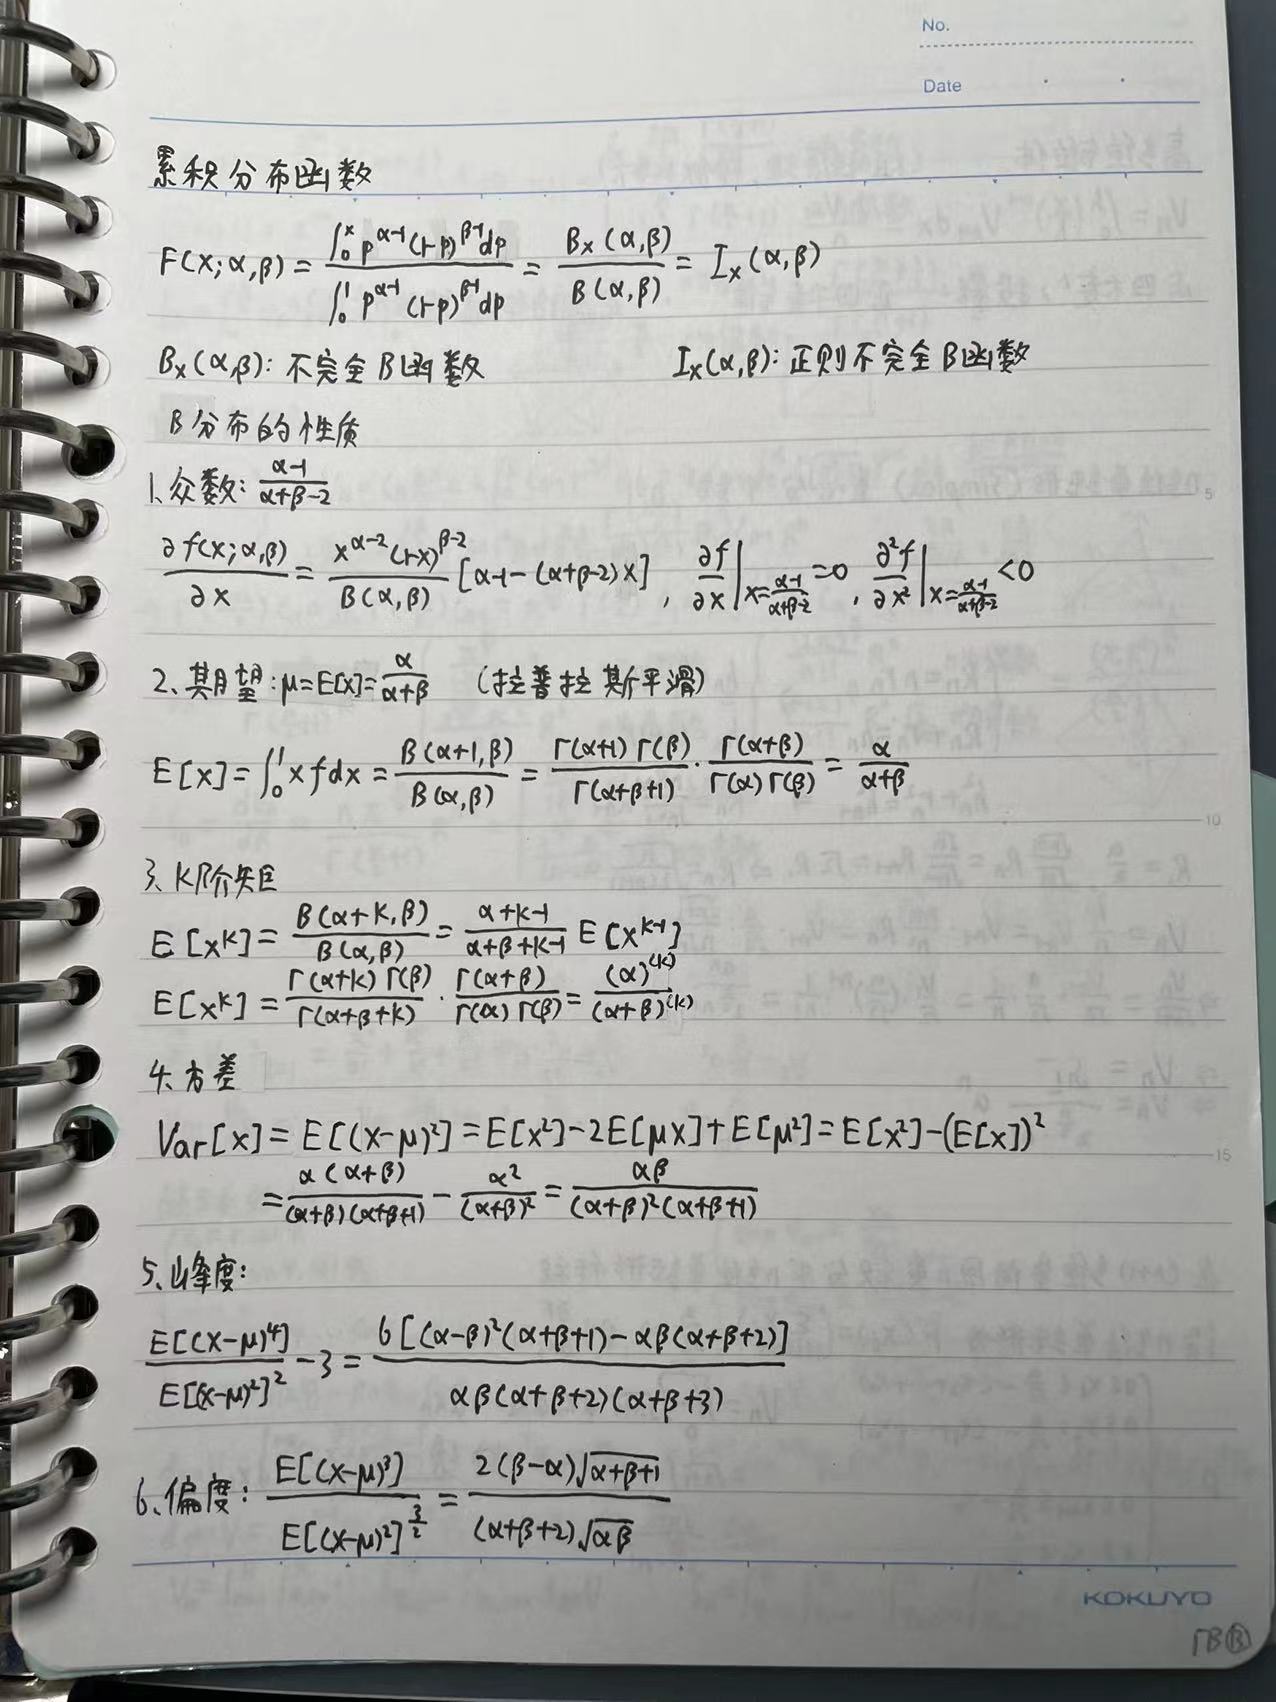 No.
Date
累积分布函数
F(x;α,β) = ∫₀ˣ p^(α-1) (1-p)^(β-1) dp / ∫₀¹ p^(α-1) (1-p)^(β-1) dp = Bx(α,β) / B(α,β) = Ix(α,β)
Bx(α,β): 不完全B函数 Ix(α,β): 正则不完全B函数
B分布的性质
1、众数: (α-1)/(α+β-2)
∂f(x;α,β)/∂x = x^(α-2) (1-x)^(β-2) / B(α,β) [α-1-(α+β-2)x] , ∂f/∂x |x=(α-1)/(α+β-2) =0 , ∂²f/∂x² |x=(α-1)/(α+β-2) <0
2、期望: μ=E[x]=α/(α+β) (拉普拉斯平滑)
E[x]=∫₀¹ x f dx = B(α+1,β)/B(α,β) = Γ(α+1)Γ(β)/Γ(α+β+1) · Γ(α+β)/Γ(α)Γ(β) = α/(α+β)
3、K阶矩
E[x^k] = B(α+k,β)/B(α,β) = (α+k-1)/(α+β+k-1) E[x^(k-1)]
E[x^k] = Γ(α+k)Γ(β)/Γ(α+β+k) · Γ(α+β)/Γ(α)Γ(β) = (α)^(k)/(α+β)^(k)
4、方差
Var[x] = E[(x-μ)²] = E[x²]-2E[μx]+E[μ²] = E[x²]-(E[x])²
= α(α+β)/(α+β)(α+β+1) - α²/(α+β)² = αβ/(α+β)²(α+β+1)
5、峰度:
E[(x-μ)⁴]/E[(x-μ)²]² -3 = 6[(α-β)²(α+β+1)-αβ(α+β+2)] / αβ(α+β+2)(α+β+3)
6、偏度: E[(x-μ)³]/E[(x-μ)²]^(3/2) = 2(β-α)√(α+β+1) / (α+β+2)√(αβ)
5
10
15
KOKUYO
ΓB⑬